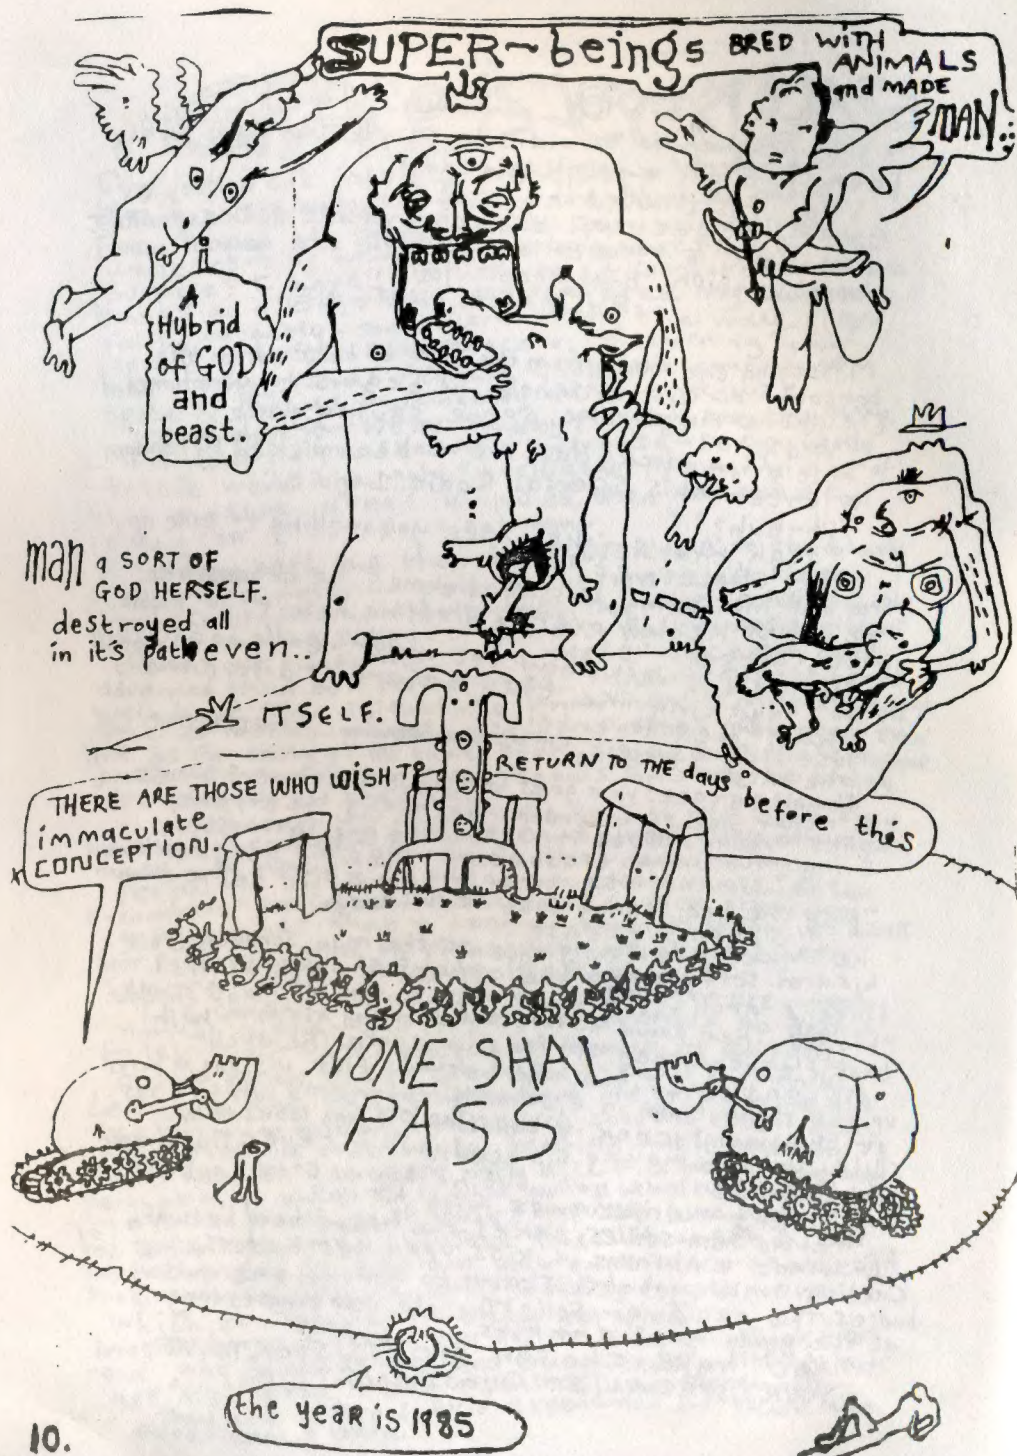 SUPER~beings BRED WITH
ANIMALS
and MADE
MAN...
A
Hybrid
of GOD
and
beast.
man a SORT OF
GOD HERSELF.
destroyed all
in it's path even..
ITSELF.
THERE ARE THOSE WHO WISH TO RETURN TO THE days before this
immaculate
CONCEPTION.
NONE SHALL
PASS
ATARI
the YEAR is 1985
10.